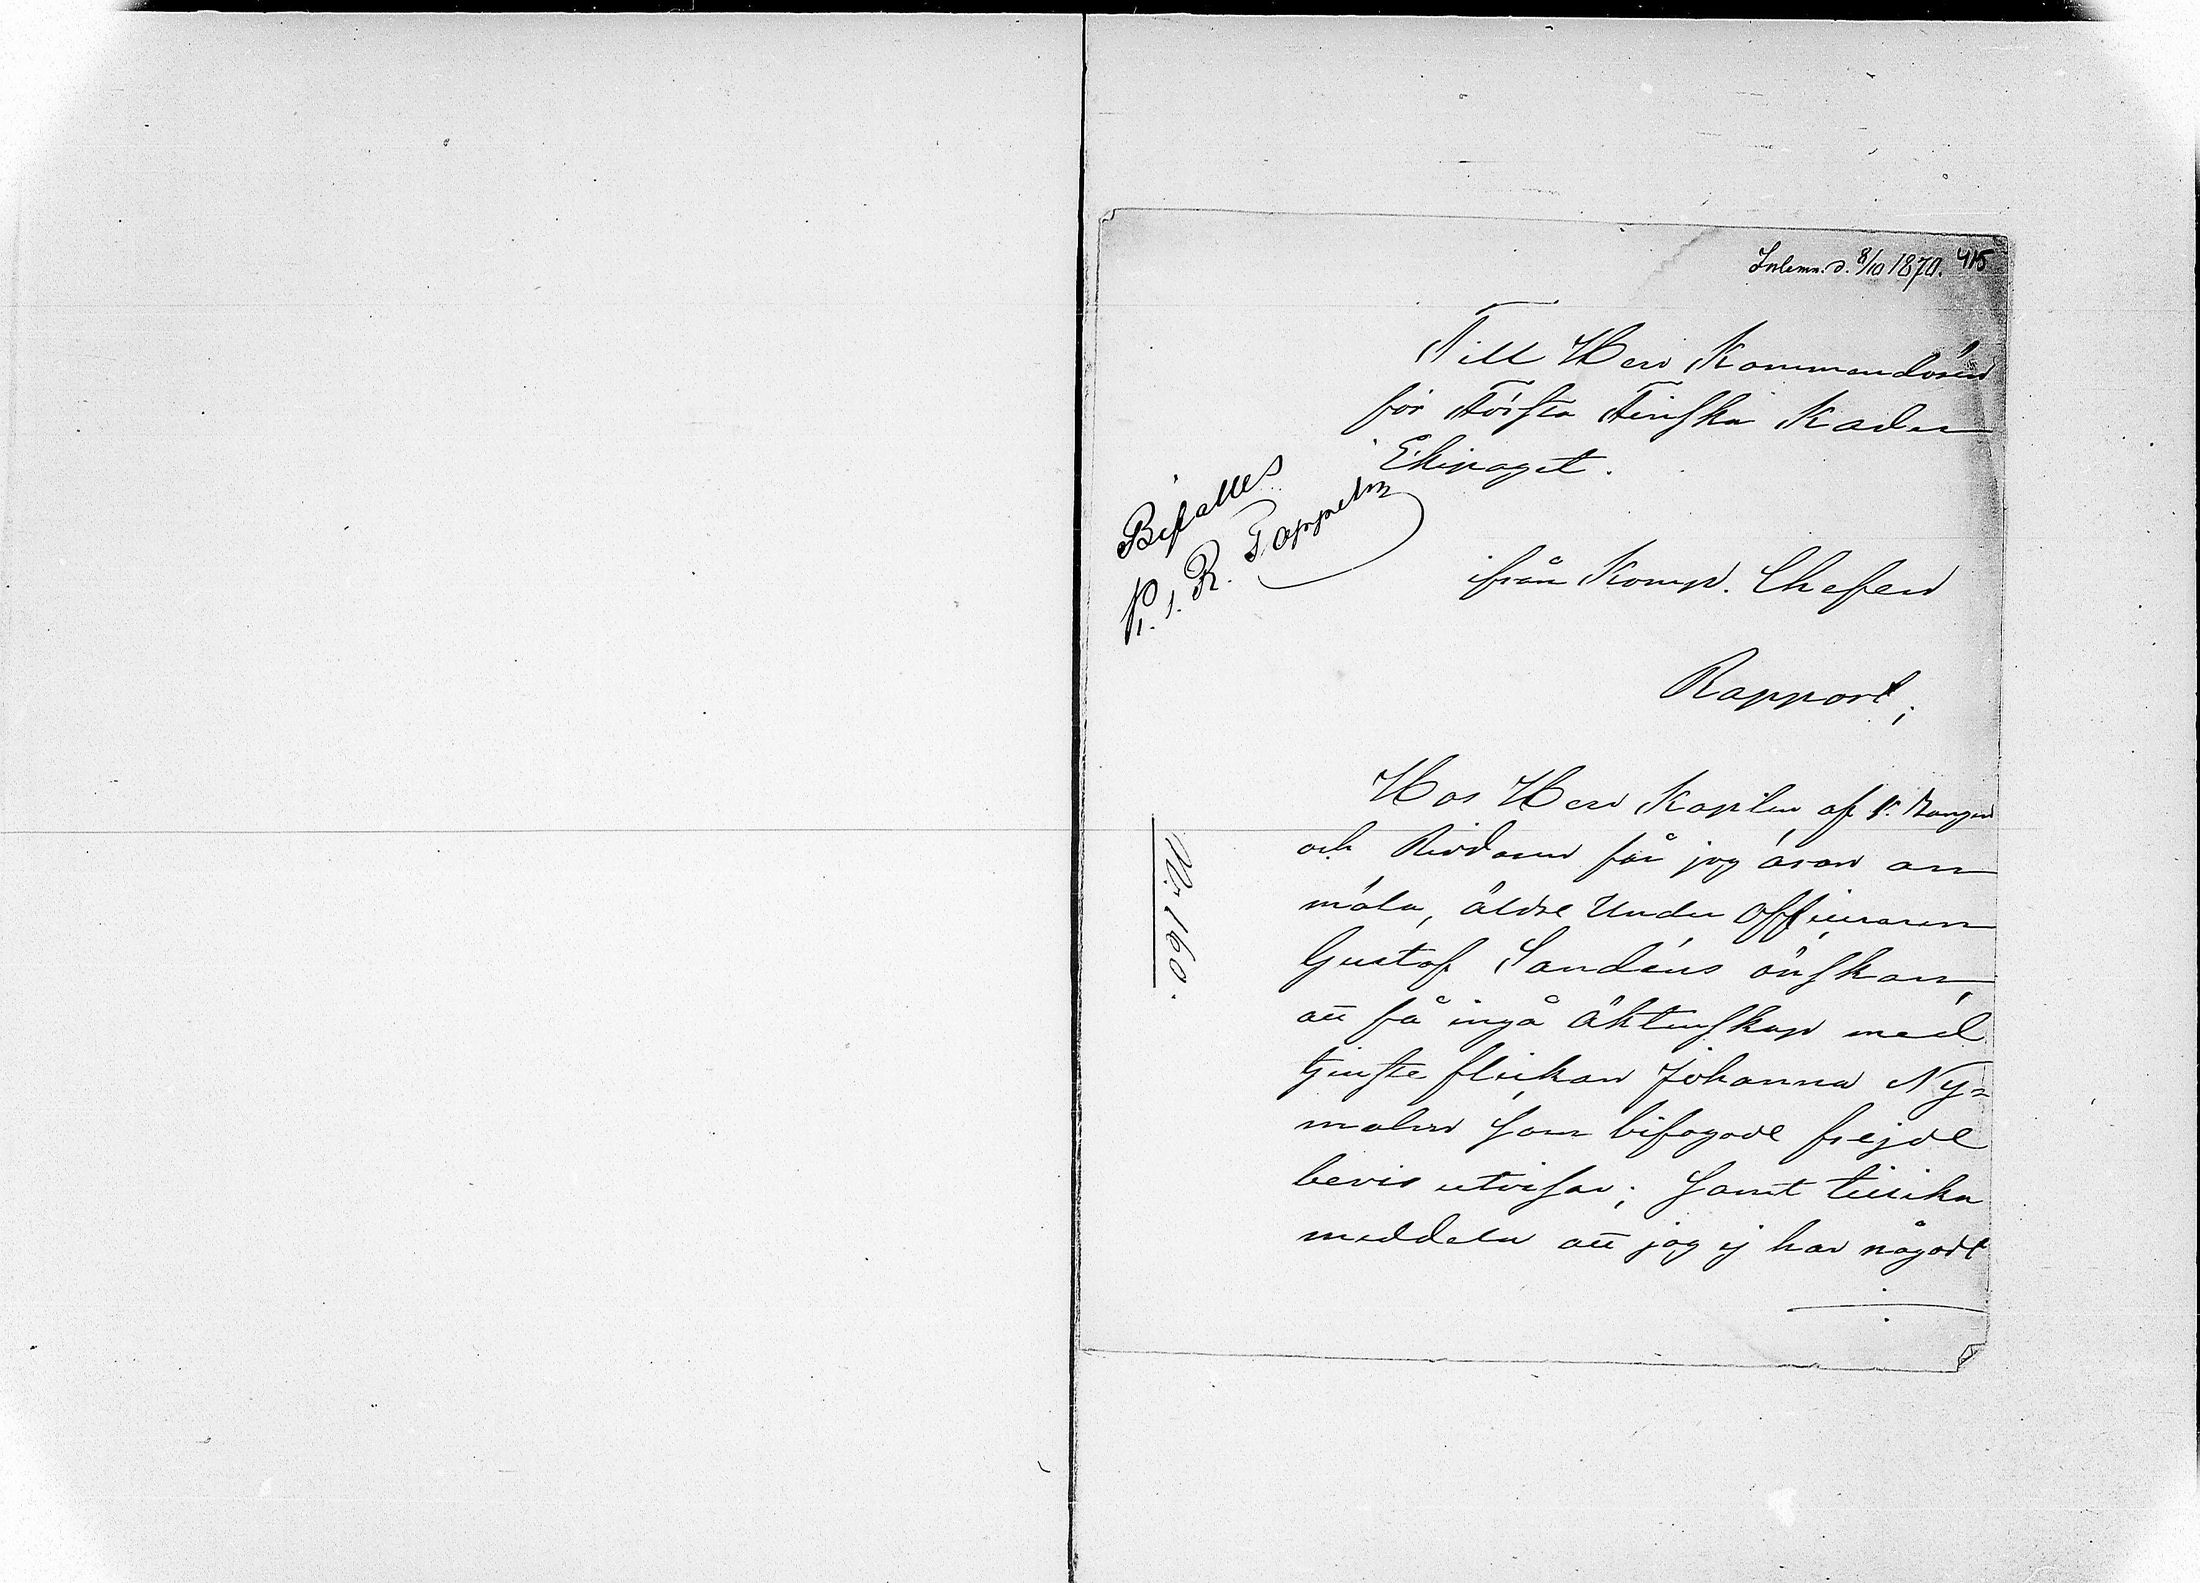 Inlemn. d. 8/10 1870. 415
Till Herr Kommendören
för Första Finska Kader
Ekipaget.
Bifalles
R. Poppelm
ifrån Komp. Chefen
Rapport;
Hos Herr Kapten af 1. Rangen
och Riddaren får jag äran an
mäla, äldre Under Officeraren
Gustof Sandéns önskan,
att få ingå äktenskap med
tjenste flickan Johanna Ny=
malm som bifogade frejde
bevis utvisar; samt tillika
meddela att jag ej har någodt
Nr 160.